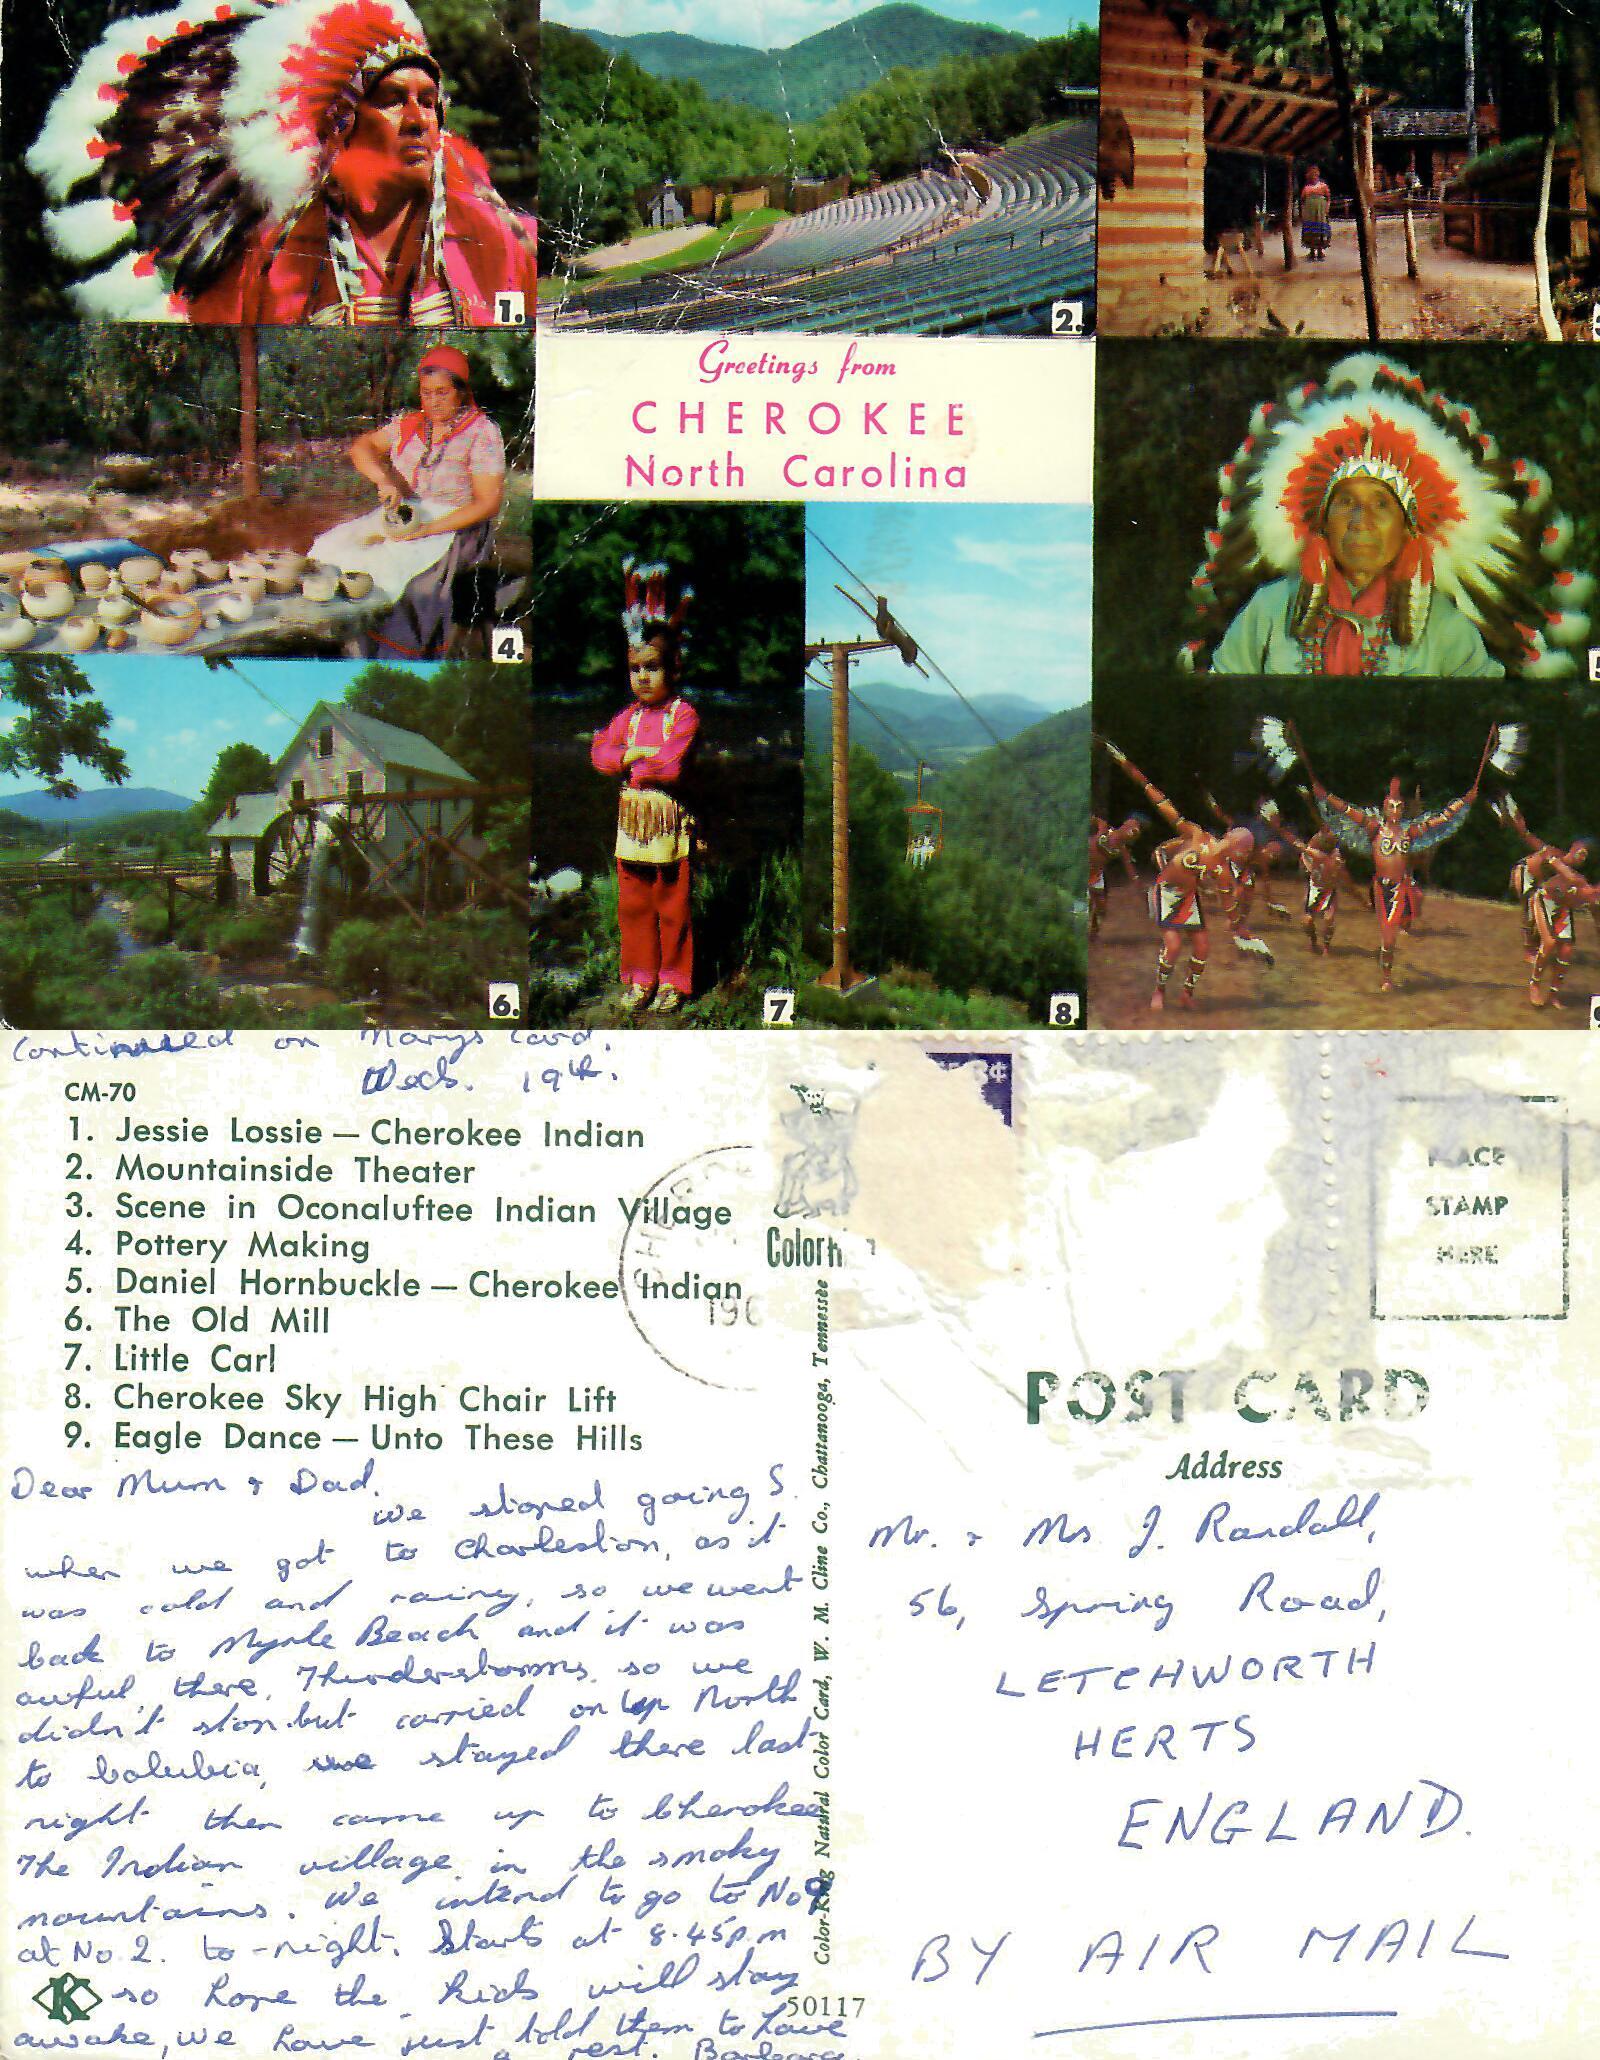 1.
2.
Greetings from
CHEROKEE
North Carolina
4.
6.
7.
8.
Continued on Marys Card.
Weds. 19th.
CM-70
1. Jessie Lossie — Cherokee Indian
2. Mountainside Theater
3. Scene in Oconaluftee Indian Village
4. Pottery Making
5. Daniel Hornbuckle — Cherokee Indian
6. The Old Mill
7. Little Carl
8. Cherokee Sky High Chair Lift
9. Eagle Dance — Unto These Hills
Dear Mum & Dad.
We stoped going S.
when we got to Charleston, as it
was cold and rainy, so we went
back to Myrtle Beach and it was
awful there, Thunderstorms, so we
didn't stop but carried on up North
to Colubia, we stayed there last
night then came up to Cherokee
The Indian village in the smoky
mountains. We intend to go to No 9
at No 2. to-night. Starts at 8.45p.m
K so hope the kids will stay
awake, we have just told them to have
a rest. Barbara.
Color-King Natural Color Card, W. M. Cline Co., Chattanooga, Tennessee
50117
PLACE
STAMP
HERE
POST CARD
Address
Mr. & Mrs J. Randall,
56, Spring Road,
LETCHWORTH
HERTS
ENGLAND.
BY AIR MAIL